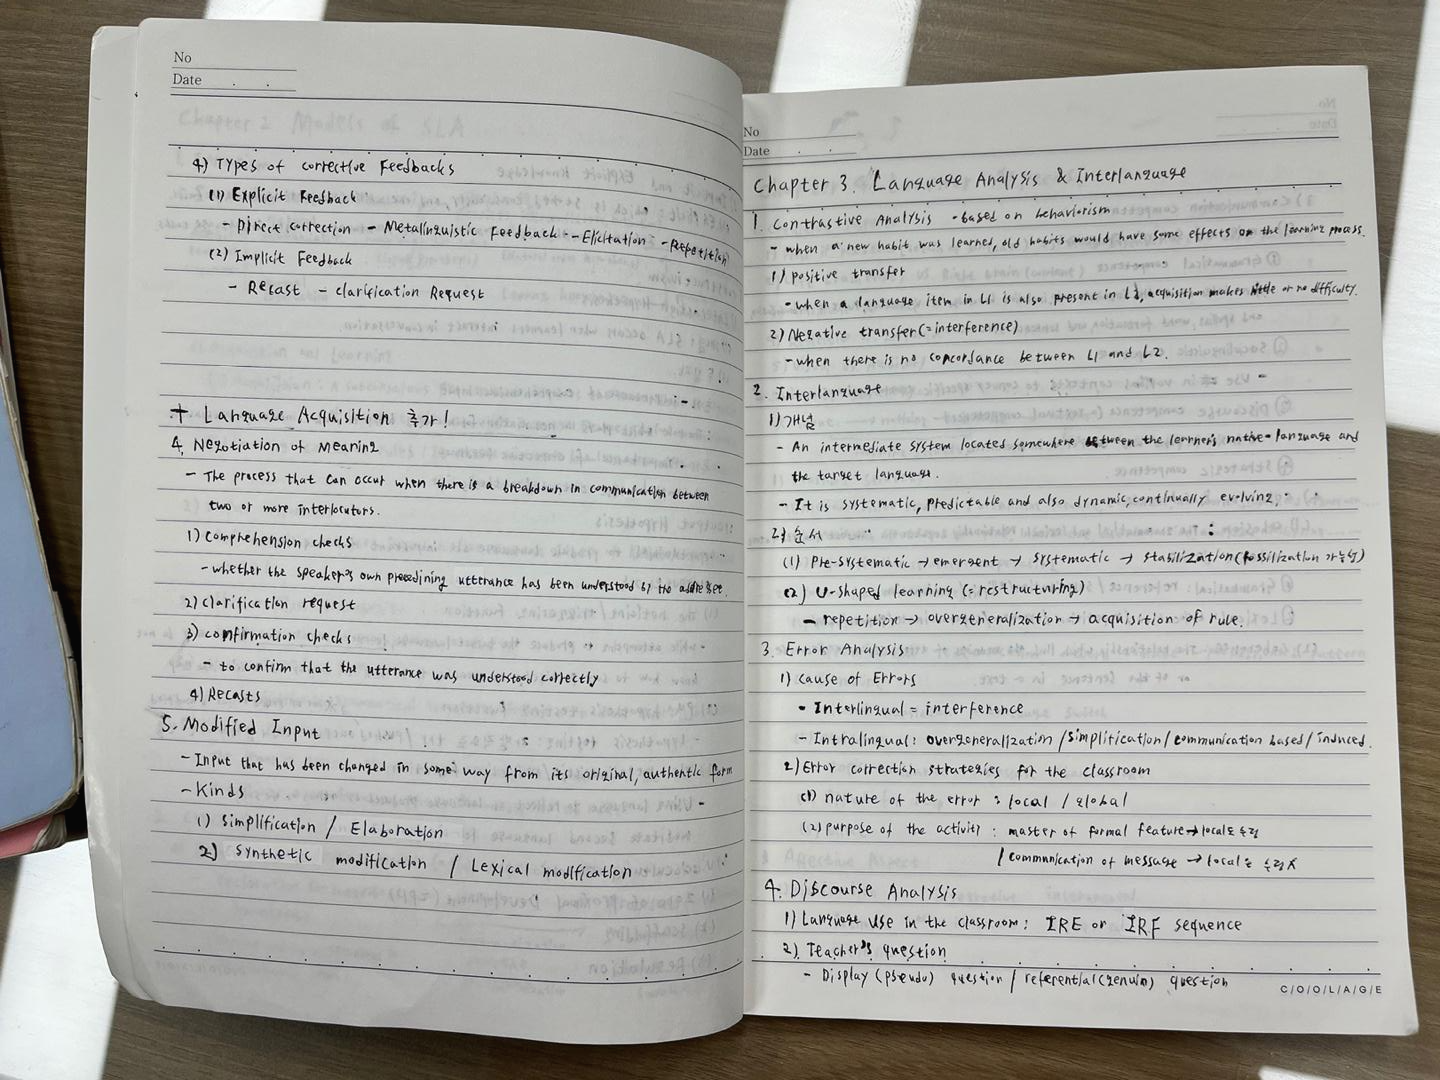 No
Date . .
4) Types of corrective Feedbacks
(1) Explicit Feedback
- Direct correction - Metalinguistic Feedback - Elicitation - Repetition
(2) Implicit Feedback
- Recast - clarification Request
+ Language Acquisition 추가!
4. Negotiation of Meaning
- The process that can occur when there is a breakdown in communication between
two or more interlocutors.
1) Comprehension checks
- whether the speaker's own precedining utterance has been understood by the addressee.
2) clarification request
3) confirmation checks
- to confirm that the utterance was understood correctly
4) Recasts
5. Modified Input
- Input that has been changed in some way from its original, authentic form
- Kinds
1) Simplification / Elaboration
2) Synthetic modification / Lexical modification
No
Date . .
Chapter 3. Language Analysis & Interlanguage
1. Contrastive Analysis - based on behaviorism
- when a new habit was learned, old habits would have some effects on the learning process.
1) positive transfer
- when a language item in L1 is also present in L2, acquisition makes little or no difficulty.
2) Negative transfer (= interference)
- when there is no concordance between L1 and L2.
2. Interlanguage
1) 개념
- An intermediate system located somewhere between the learner's native-language and
the target language.
- It is systematic, predictable and also dynamic, continually evolving.
2) 순서
(1) Pre-systematic → emergent → systematic → stabilization (fossilization 가능성)
(2) U-shaped learning (= restructuring)
- repetition → overgeneralization → acquisition of rule.
3. Error Analysis
1) cause of Errors
- Interlingual = interference
- Intralingual: overgeneralization / simplification / communication based / induced.
2) Error correction strategies for the classroom
(1) nature of the error : local / global
(2) purpose of the activity : master of formal feature → local도 수정
/ communication of message → local는 수정 X
4. Discourse Analysis
1) Language use in the classroom: IRE or IRF sequence
2) Teacher's question
- Display (pseudo) question / referential (genuin) question
C/O/O/L/A/G/E